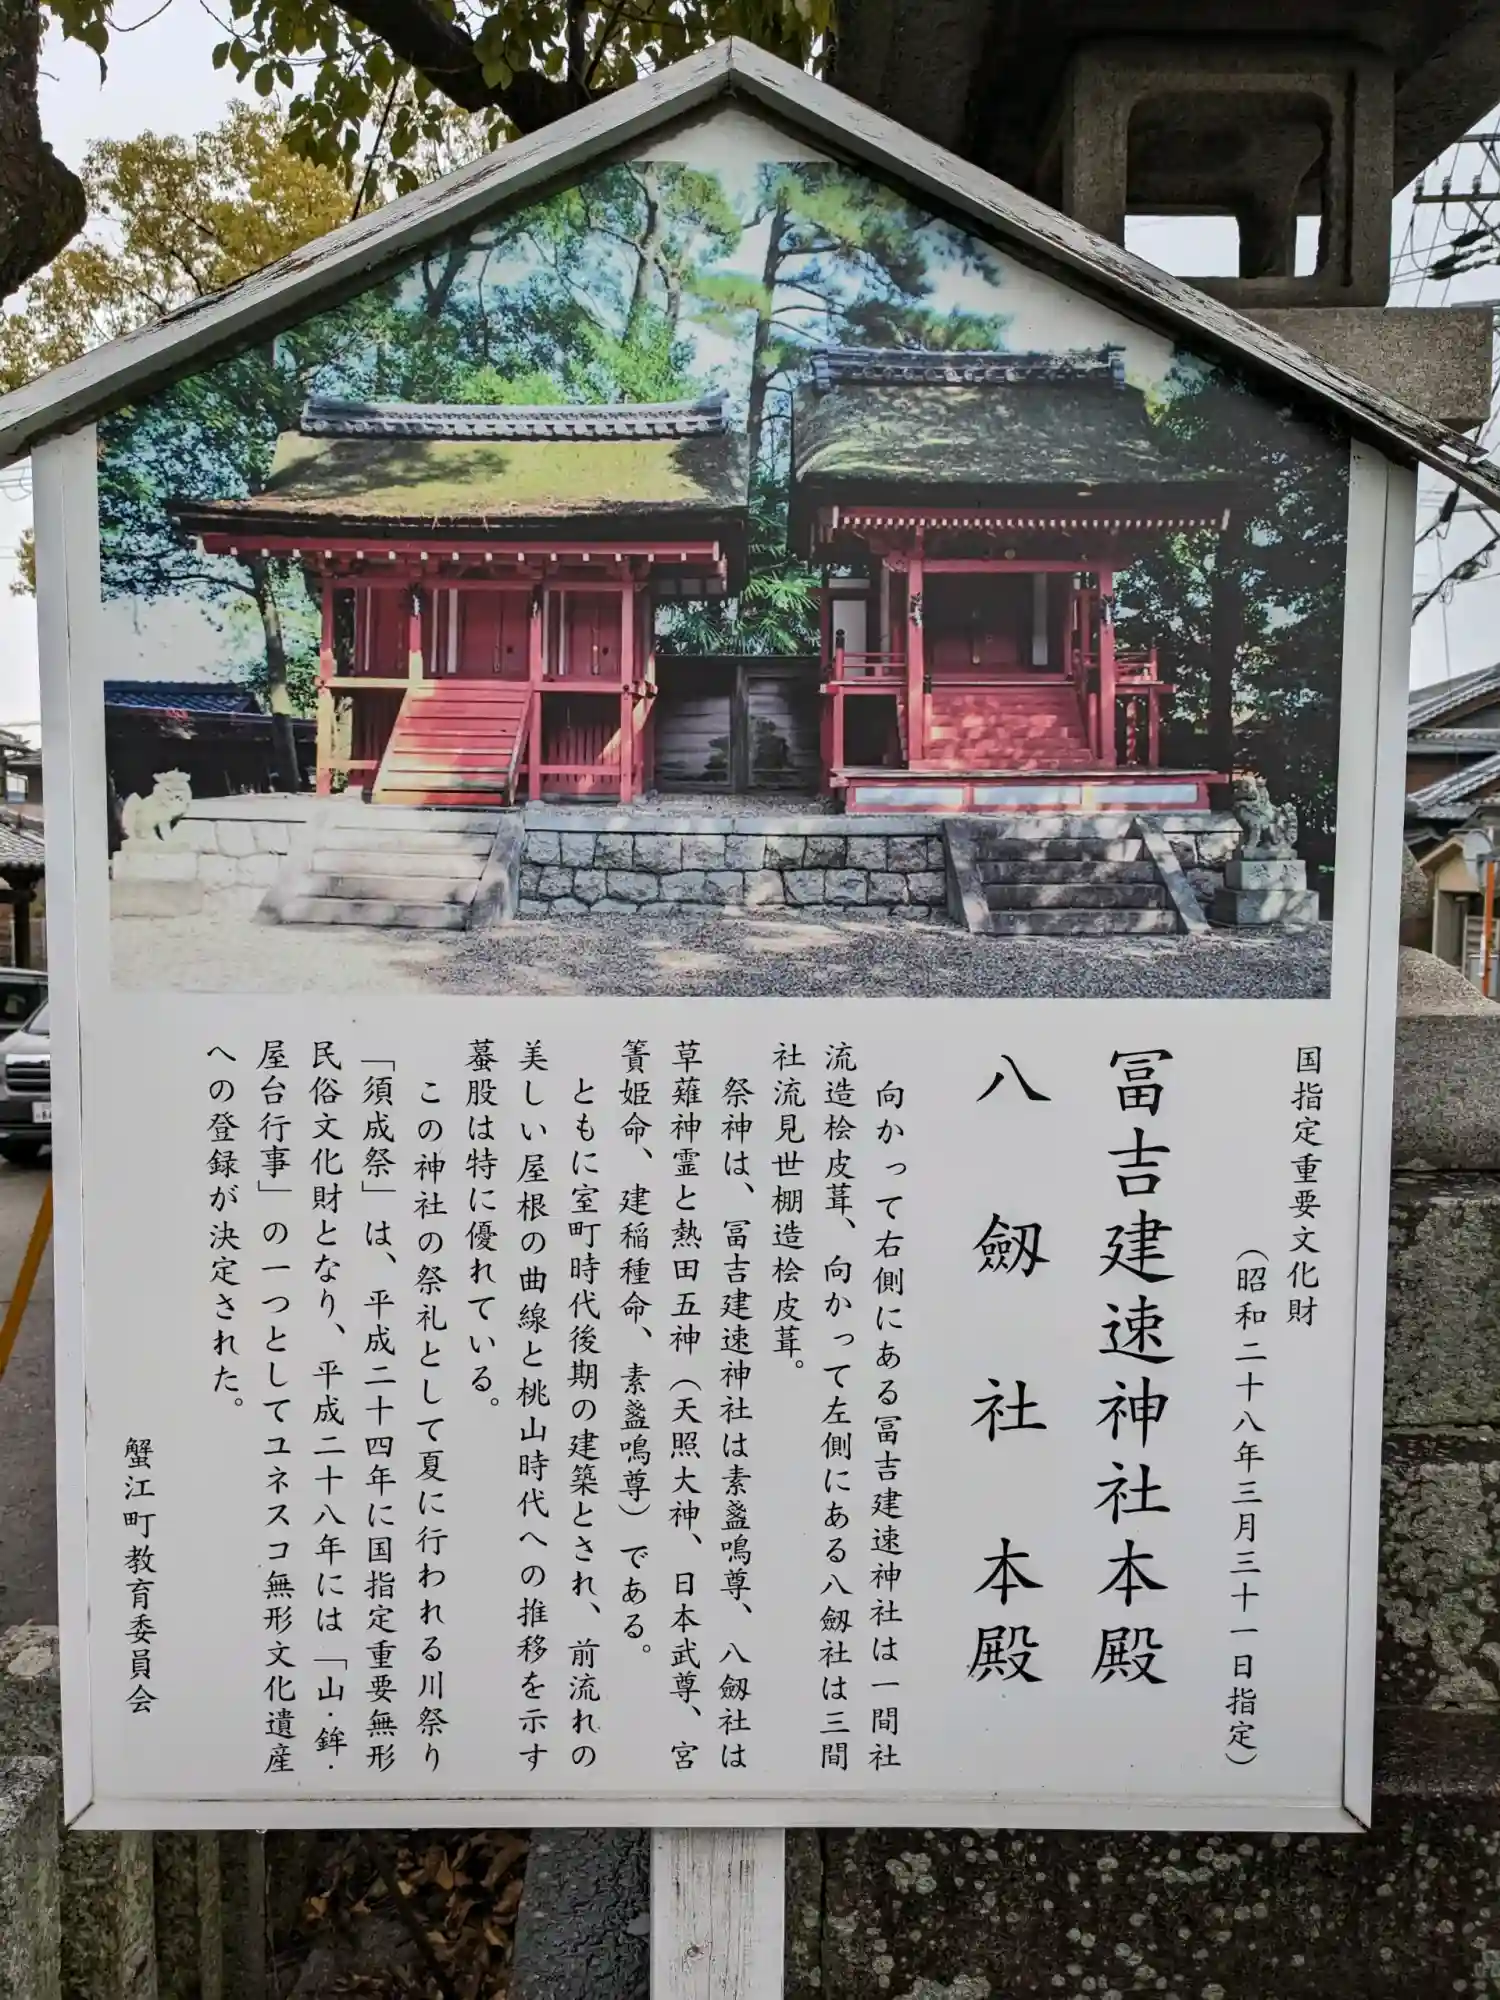 国指定重要文化財
（昭和二十八年三月三十一日指定）
冨吉建速神社本殿
八劔社本殿
向かって右側にある冨吉建速神社は一間社
流造桧皮葺、向かって左側にある八劔社は三間
社流見世棚造桧皮葺。
祭神は、冨吉建速神社は素盞鳴尊、八劔社は
草薙神霊と熱田五神（天照大神、日本武尊、宮
簀姫命、建稲種命、素盞鳴尊）である。
ともに室町時代後期の建築とされ、前流れの
美しい屋根の曲線と桃山時代への推移を示す
蟇股は特に優れている。
この神社の祭礼として夏に行われる川祭り
「須成祭」は、平成二十四年に国指定重要無形
民俗文化財となり、平成二十八年には「山・鉾・
屋台行事」の一つとしてユネスコ無形文化遺産
への登録が決定された。
蟹江町教育委員会